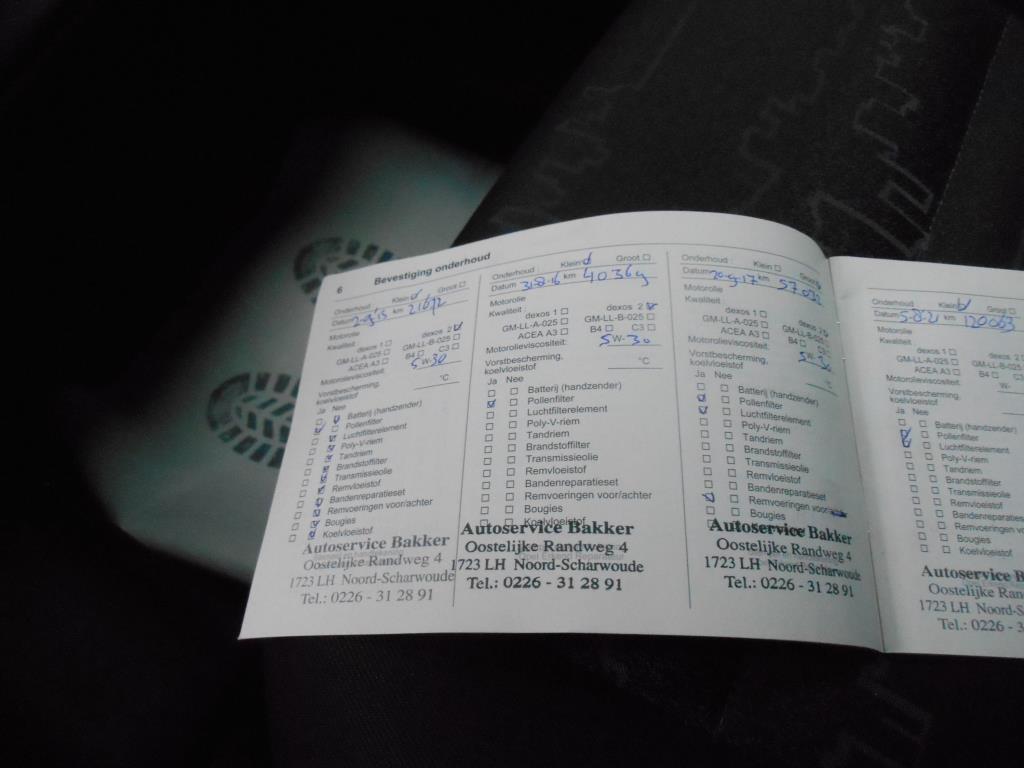 6 Bevestiging onderhoud
Onderhoud : Klein Groot
Datum 2-9-15 km 21672
Motorolie
Kwaliteit : dexos 1 dexos 2
GM-LL-A-025 GM-LL-B-025
ACEA A3 B4 C3
Motorolieviscositeit: 5W-30
Vorstbescherming,
koelvloeistof °C
Ja Nee
Batterij (handzender)
Pollenfilter
Luchtfilterelement
Poly-V-riem
Tandriem
Brandstoffilter
Transmissieolie
Remvloeistof
Bandenreparatieset
Remvoeringen voor/achter
Bougies
Koelvloeistof
Autoservice Bakker
Oostelijke Randweg 4
1723 LH Noord-Scharwoude
Tel.: 0226 - 31 28 91
Onderhoud : Klein Groot
Datum 31-8-16 km 40369
Motorolie
Kwaliteit : dexos 1 dexos 2
GM-LL-A-025 GM-LL-B-025
ACEA A3 B4 C3
Motorolieviscositeit: 5W-30
Vorstbescherming,
koelvloeistof °C
Ja Nee
Batterij (handzender)
Pollenfilter
Luchtfilterelement
Poly-V-riem
Tandriem
Brandstoffilter
Transmissieolie
Remvloeistof
Bandenreparatieset
Remvoeringen voor/achter
Bougies
Koelvloeistof
Autoservice Bakker
Oostelijke Randweg 4
1723 LH Noord-Scharwoude
Tel.: 0226 - 31 28 91
Onderhoud : Klein Groot
Datum 20-9-17 km
Motorolie
Kwaliteit : dexos 1 dexos 2
GM-LL-A-025 GM-LL-B-025
ACEA A3 B4 C3
Motorolieviscositeit: 5W-30
Vorstbescherming,
koelvloeistof °C
Ja Nee
Batterij (handzender)
Pollenfilter
Luchtfilterelement
Poly-V-riem
Tandriem
Brandstoffilter
Transmissieolie
Remvloeistof
Bandenreparatieset
Remvoeringen voor
Bougies
Autoservice Bakker
Oostelijke Randweg 4
1723 LH Noord-Scharwoude
Tel.: 0226 - 31 28 91
Onderhoud : Klein Groot
Datum 5-8-21 km 120063
Motorolie
Kwaliteit : dexos 1 dexos 2
GM-LL-A-025 GM-LL-B
ACEA A3 B4
Motorolieviscositeit: W-
Vorstbescherming,
koelvloeistof
Ja Nee
Batterij (handzender)
Pollenfilter
Luchtfilterelement
Poly-V-riem
Tandriem
Brandstoffilter
Transmissieolie
Remvloeistof
Bandenreparatieset
Remvoeringen vo
Bougies
Koelvloeistof
Autoservice B
Oostelijke Rand
1723 LH Noord-S
Tel.: 0226 - 3